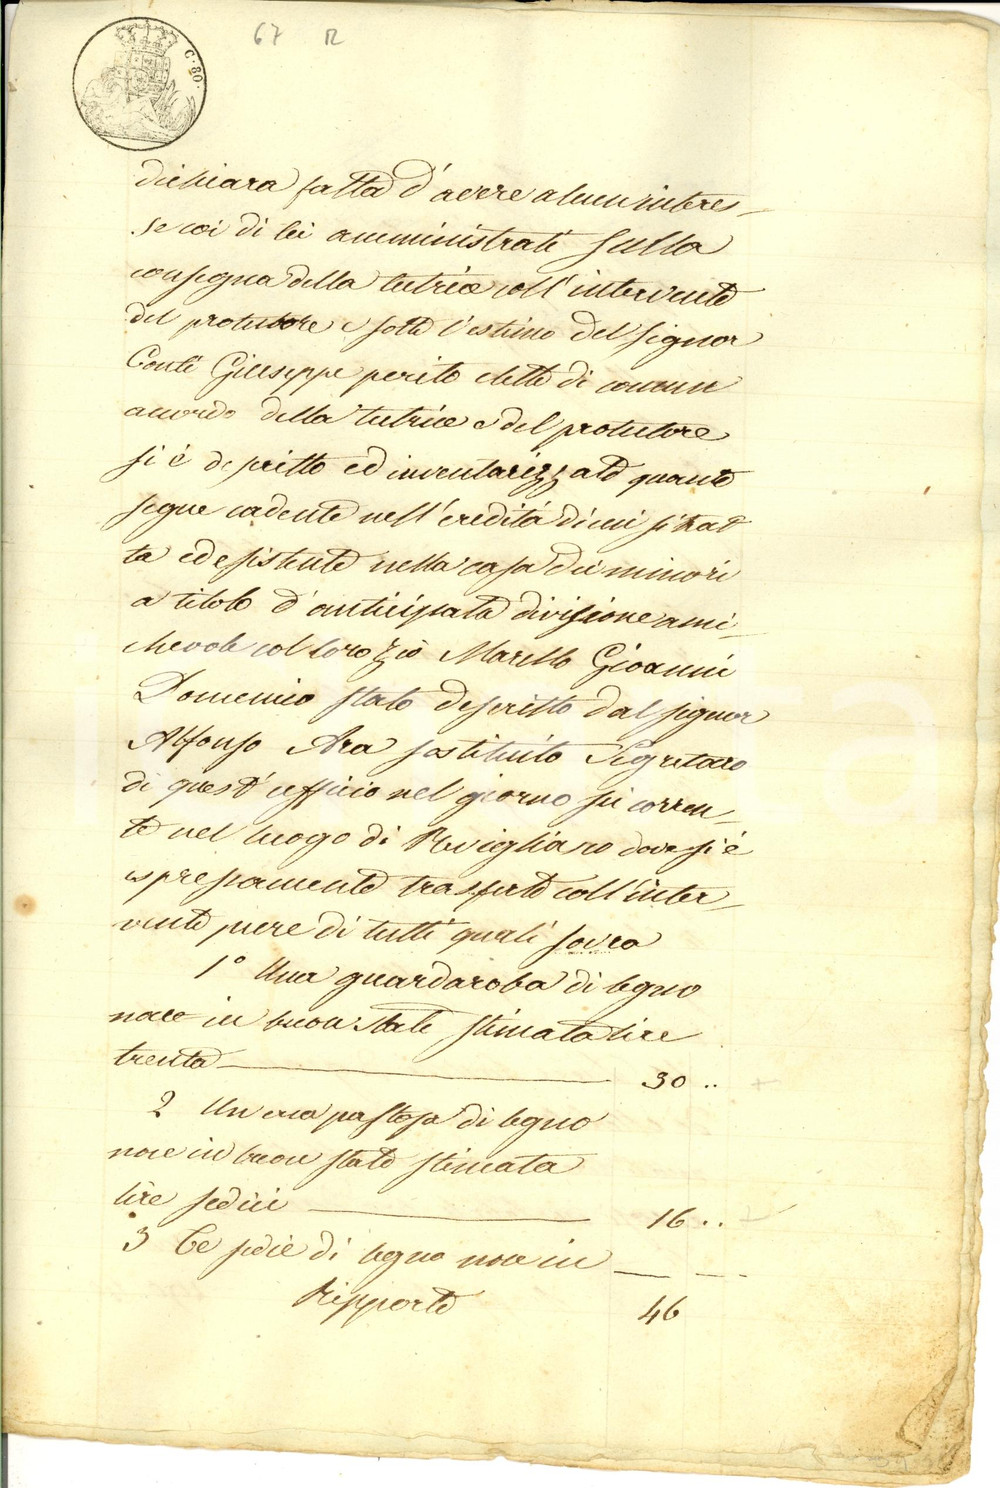 67 12
C. 80.
dichiara fatta d'avere alcun interes-
se coi di lei amministrati sulla
consegna della tutrice coll'intervento
del protutore e sotto l'estimo del signor
Conti Giuseppe perito eletto di comune
accordo della tutrice e del protutore
si è descritto ed inventarizzato quanto
segue cadente nell'eredità di cui si trat
ta ed esistente nella casa dei minori
a titolo d'anticipata divisione ami-
chevole col loro zio Marello Gioanni
Domenico stato descritto dal signor
Alfonso Ara sostituito Segretaro
di quest'ufficio nel giorno sei corren-
te nel luogo di Revigliasco dove si è
espressamente trasferto coll'inter-
vento pure di tutti quali sovra
1° Una guardaroba di legno
noce in buon stato stimata lire
trenta 30 ..
2 Un pastosa di legno
noce in buon stato stimata
lire sedici 16 ..
3 Tre sedie di legno noce in
Ripporto 46